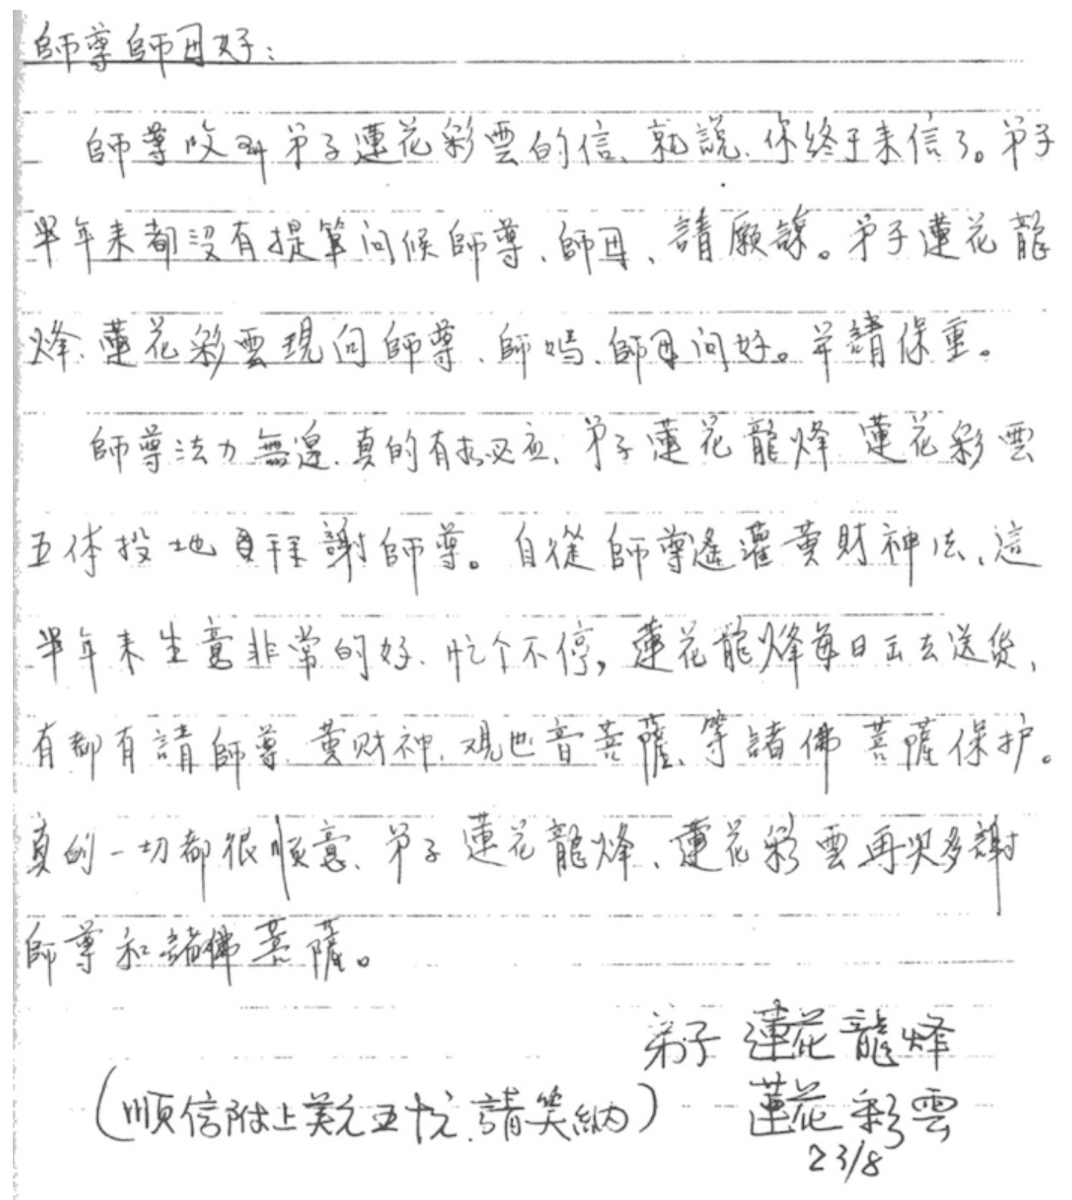 師尊師母好：
師尊收到弟子蓮花彩雲的信、就說、你終于来信了。弟子
半年来都没有提筆问候師尊、師母、請原諒。弟子蓮花龍
烽、蓮花彩雲現向師尊、師嗎、師母问好。并請保重。
師尊法力無邊、真的有求必应、弟子蓮花龍烽 蓮花彩雲
五体投地 拜謝師尊。自從師尊遙灌黄財神法、這
半年来生意非常的好、忙个不停，蓮花龍烽每日出去送货、
有都有請師尊、黄财神、观世音菩薩、等諸佛菩薩保护。
真的一切都很順意、弟子蓮花龍烽、蓮花彩雲再次多謝
師尊和諸佛菩薩。
弟子 蓮花龍烽
(順信附上美元五十元、請笑納) 蓮花彩雲
23/8